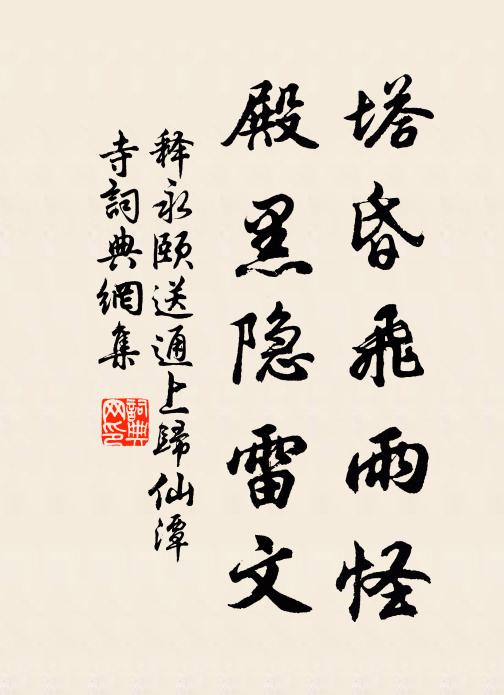 塔昏飛雨怪
殿黑隐雷文
释永颐送通上歸仙潭
寺詞典網集
詞典
网印